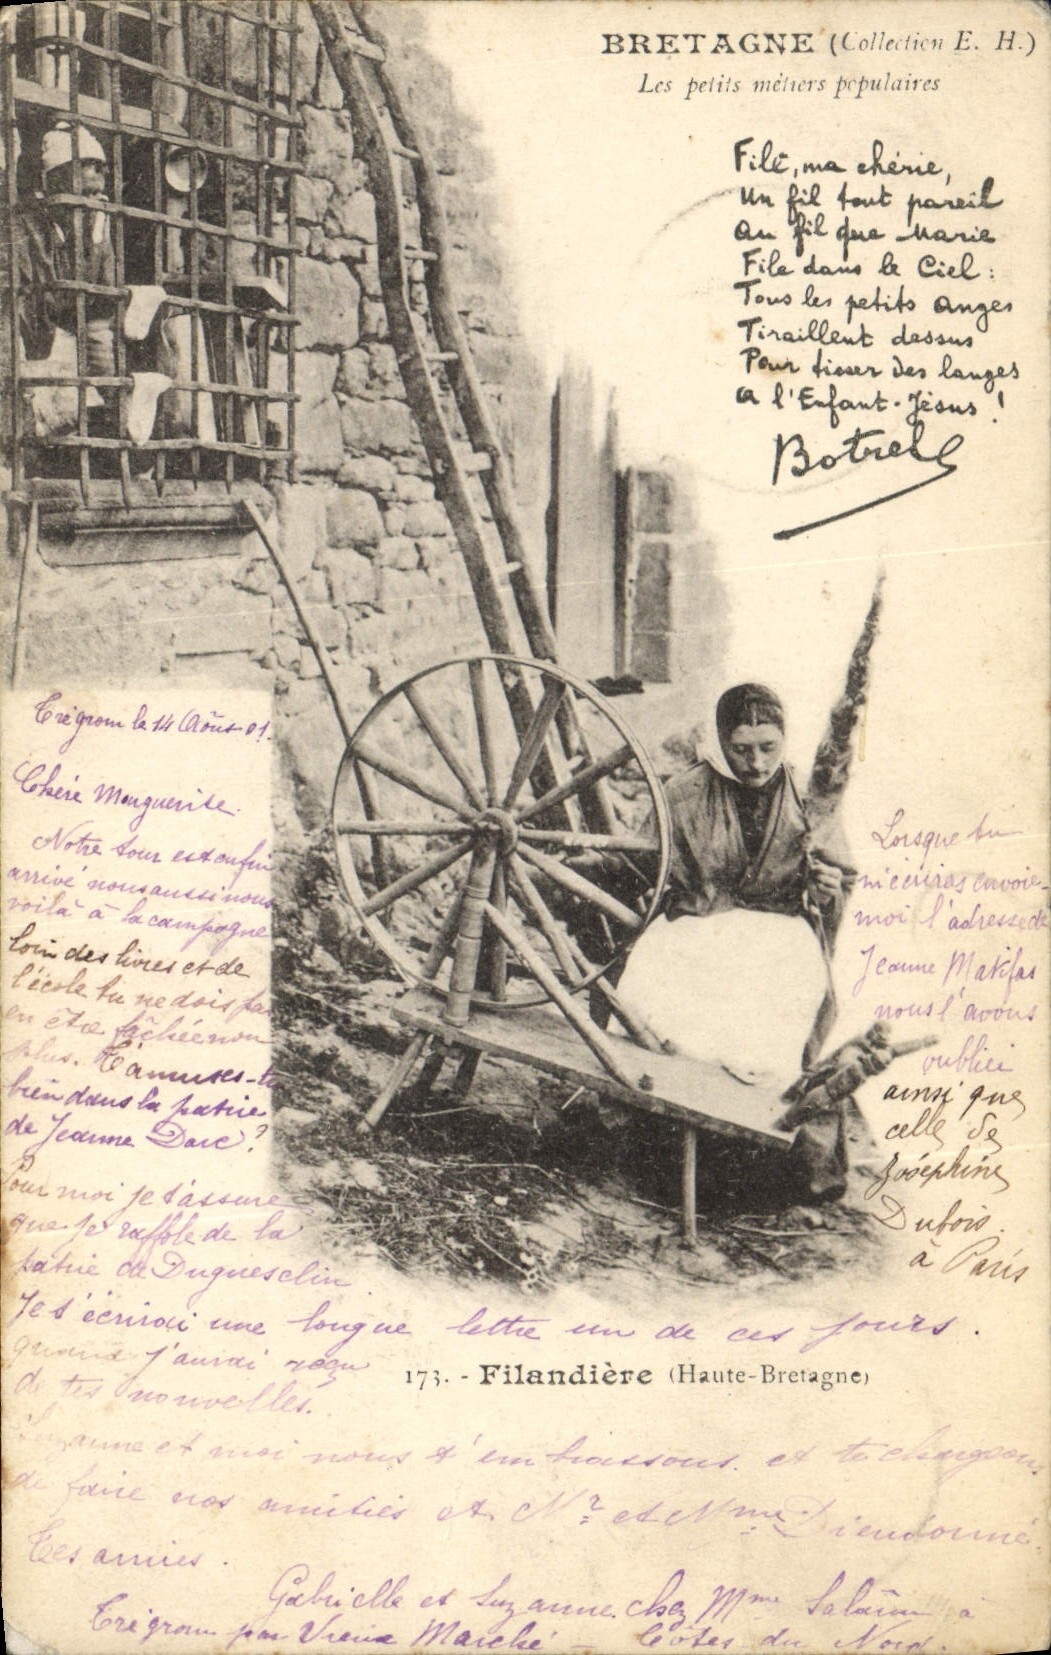 BRETAGNE (Collection E. H.)
Les petits métiers populaires
File, ma chérie,
Un fil tout pareil
Au fil que Marie
File dans le Ciel :
Tous les petits anges
Tiraillent dessus
Pour tisser des langes
A l'Enfant-Jésus !
Botrel
Trégrom le 14 Août 01.
Chère Marguerite.
Notre tour est enfin
arrivé nous aussi nous
voilà à la campagne
loin des livres et de
l'école tu ne dois pas
en être fâchée non
plus. T'amuses-tu
bien dans la patrie
de Jeanne Darc ?
Pour moi je t'assure
que je raffole de la
patrie de Duguesclin
Je t'écrirai une longue lettre un de ces jours.
quand j'aurai reçu
de tes nouvelles.
Lorsque tu
m'écriras envoie-
moi l'adresse de
Jeanne Matifas
nous l'avons
oubliée
ainsi que
celle de
Joséphine
Dubois.
à Paris
173. - Filandière (Haute-Bretagne)
Suzanne et moi nous t'embrassons et te chargeons
de faire nos amitiés et Mr et Mme Dieudonné.
Tes amies.
Gabrielle et Suzanne. chez Mme Salaün à
Trégrom par Vieux Marché - Côtes du Nord.